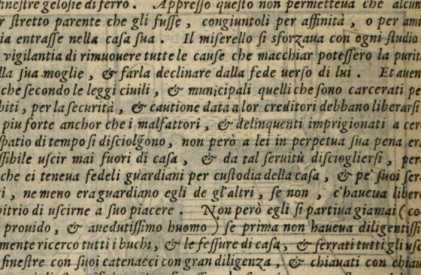 finestre gelosie di ferro. Appresso questo non permetteua che alcun
stretto parente che gli fusse, congiuntoli per affinità, o per am
ia entrasse nella casa sua. Il miserello si sforzaua con ogni studio
vigilantia di rimuouere tutte le cause che macchiar potessero la purit
lla sua moglie, & farla declinare dalla fede uerso di lui. Et auen
che secondo le leggi ciuili, & municipali quelli che sono carcerati pe
biti, per la securità, & cautione data a lor creditori debbano liberarsi
piu forte anchor che i malfattori, & delinquenti imprigionati a cer
spatio di tempo si disciolgono, non però a lei in perpetua sua pena era
ssibile uscir mai fuori di casa, & da tal seruitù disciogliersi, per
che ei teneua fedeli guardiani per custodia della casa, & pe' suoi ser
i, ne meno era guardiano egli de gl'altri, se non, c'haueua liber
bitrio di uscirne a suo piacere. Non però egli si partiua giamai (co
prouido, & auedutissimo huomo) se prima non haueua diligentissi
mente ricerco tutti i buchi, & le fessure di casa, & serrati tutti gli usc
finestre con suoi catenacci con gran diligenza, & chiauati con chiau